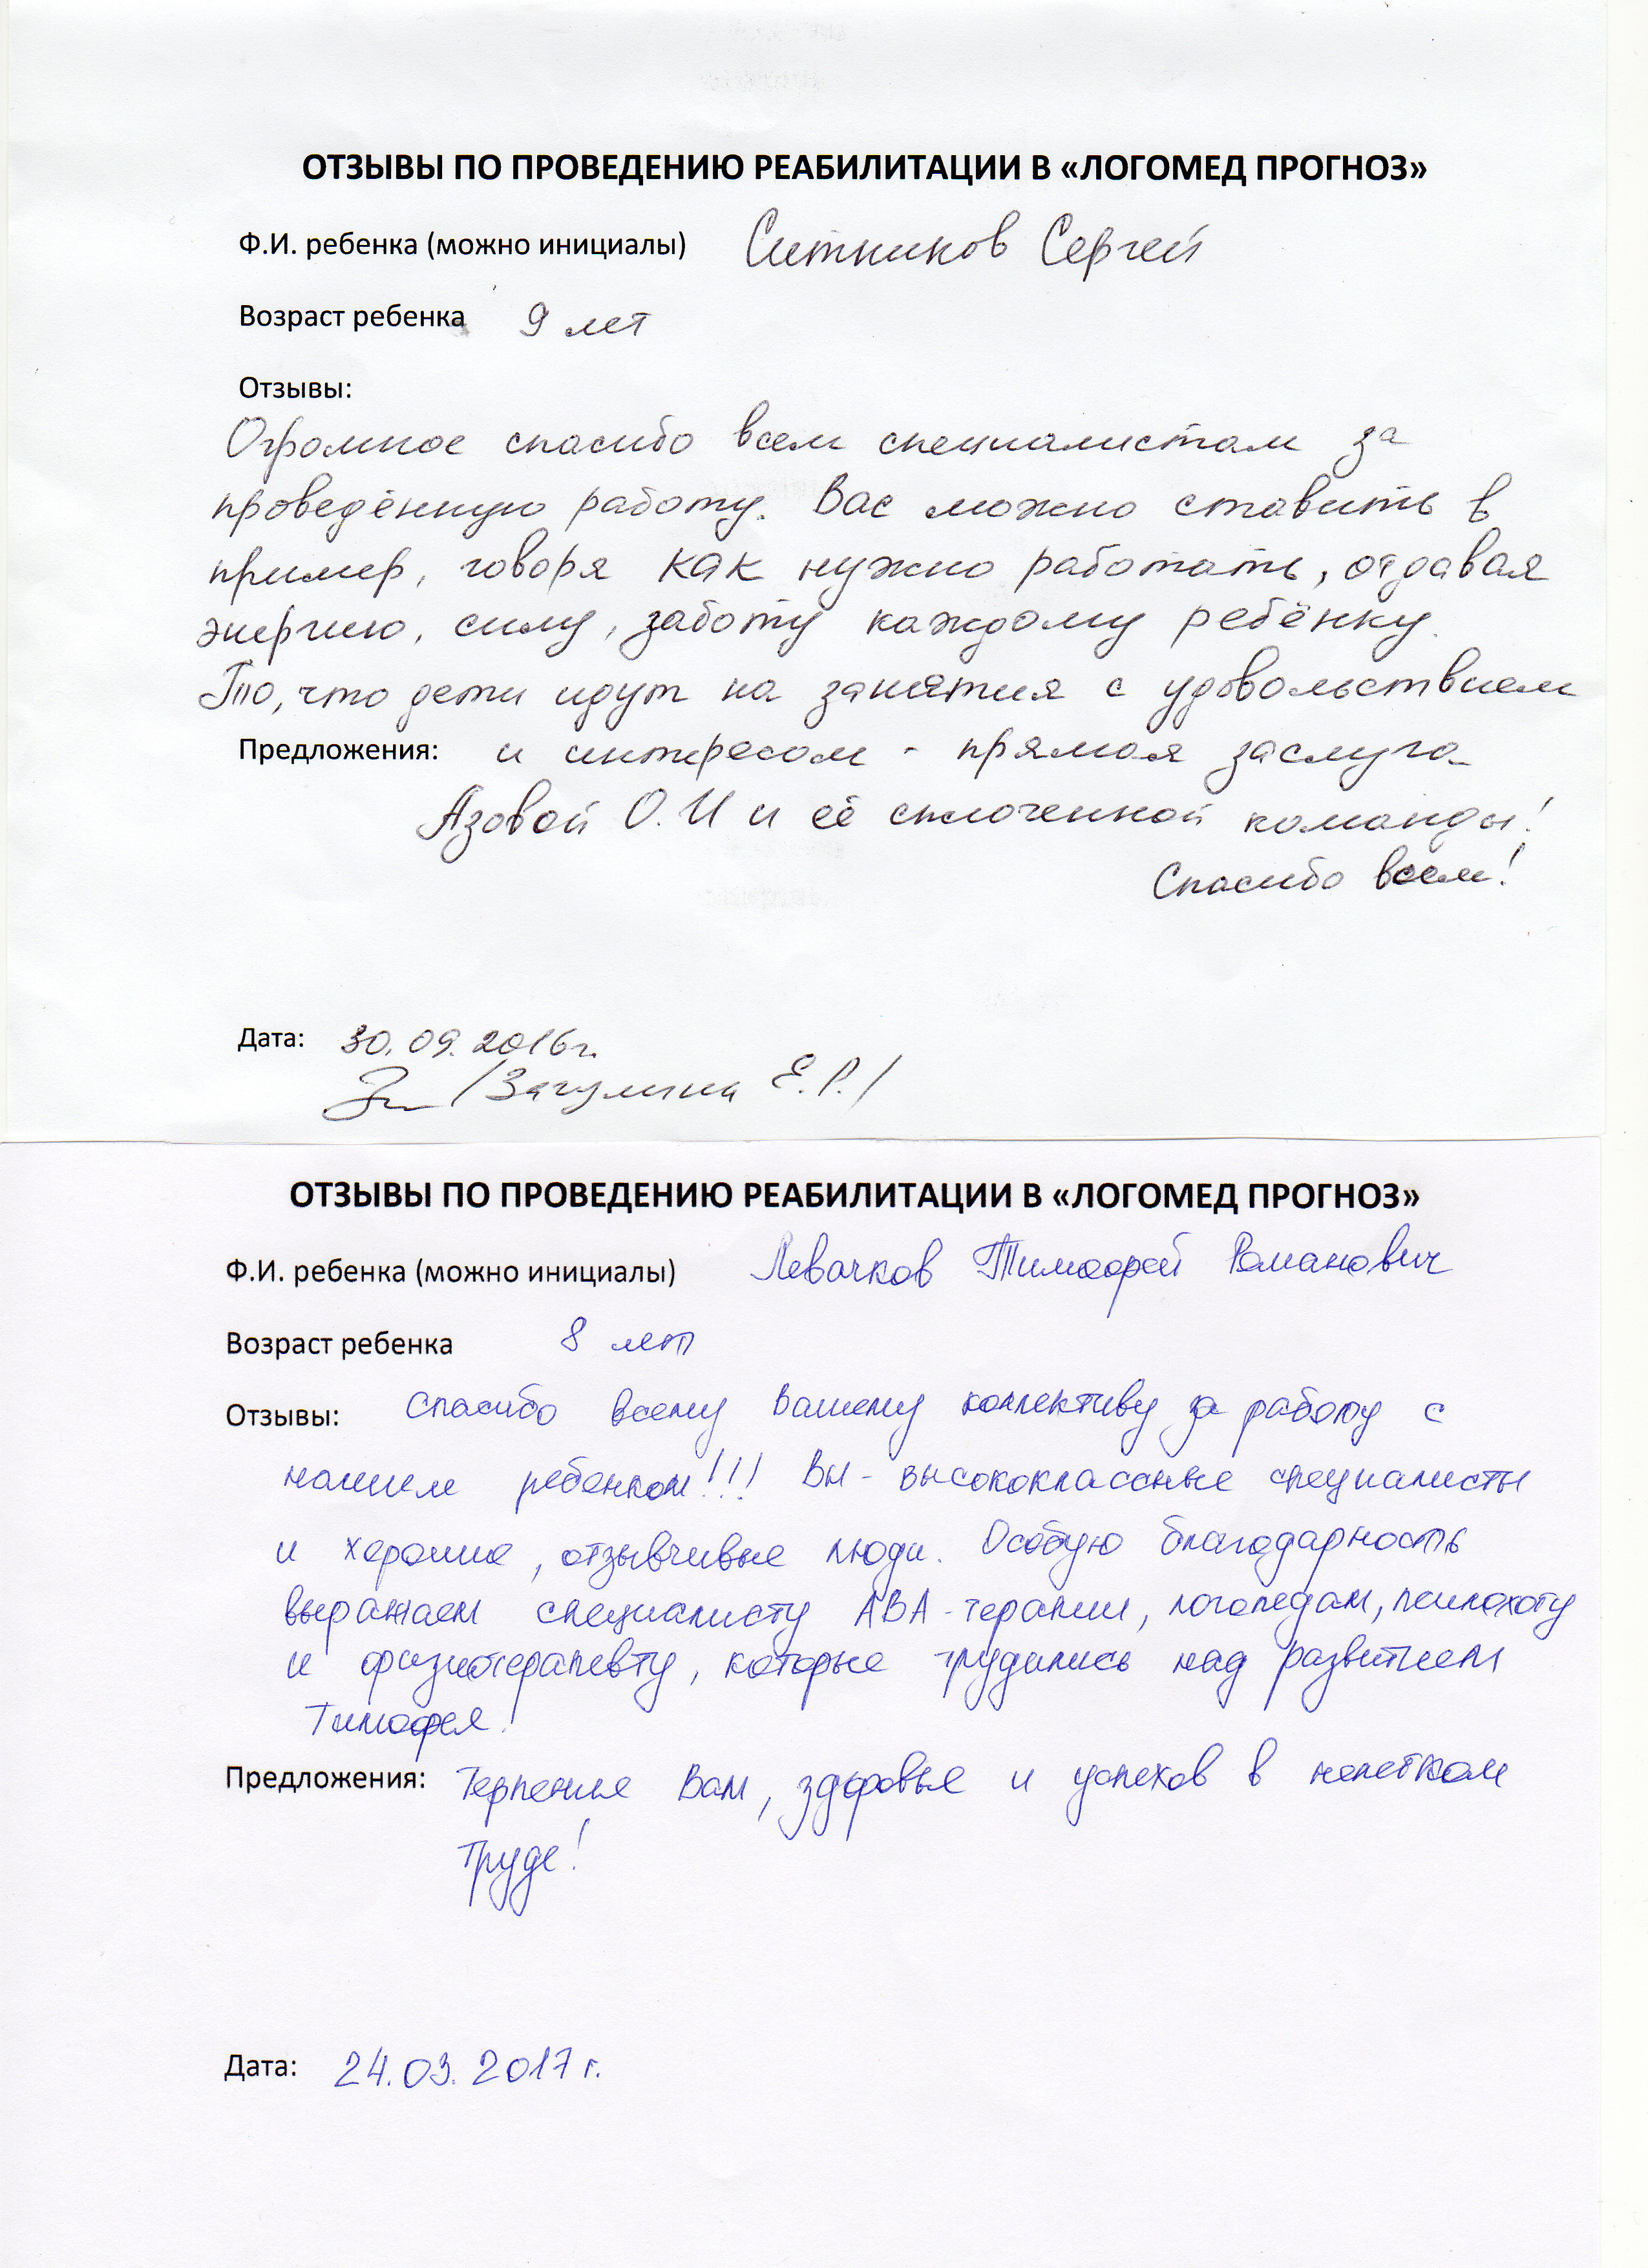 ОТЗЫВЫ ПО ПРОВЕДЕНИЮ РЕАБИЛИТАЦИИ В «ЛОГОМЕД ПРОГНОЗ»
Ф.И. ребенка (можно инициалы) Ситников Сергей
Возраст ребенка 9 лет
Отзывы:
Огромное спасибо всем специалистам за
проведённую работу. Вас можно ставить в
пример, говоря как нужно работать, отдавая
энергию, силу, заботу каждому ребёнку.
То, что дети идут на занятия с удовольствием
Предложения: и интересом - прямая заслуга
Азовой О.И и её сплоченной команды!
Спасибо всем!
Дата: 30.09.2016г.
/Загулина Е.Р./
ОТЗЫВЫ ПО ПРОВЕДЕНИЮ РЕАБИЛИТАЦИИ В «ЛОГОМЕД ПРОГНОЗ»
Ф.И. ребенка (можно инициалы) Левачков Тимофей Романович
Возраст ребенка 8 лет
Отзывы: Спасибо всему Вашему коллективу за работу с
нашим ребенком!!! Вы - высококлассные специалисты
и хорошие, отзывчивые люди. Особую благодарность
выражаем специалисту АВА-терапии, логопедам,
и физиотерапевту, которые трудились над развитием
Тимофея.
Предложения: Терпения Вам, здоровья и успехов в нелегком
труде!
Дата: 24.03.2017 г.